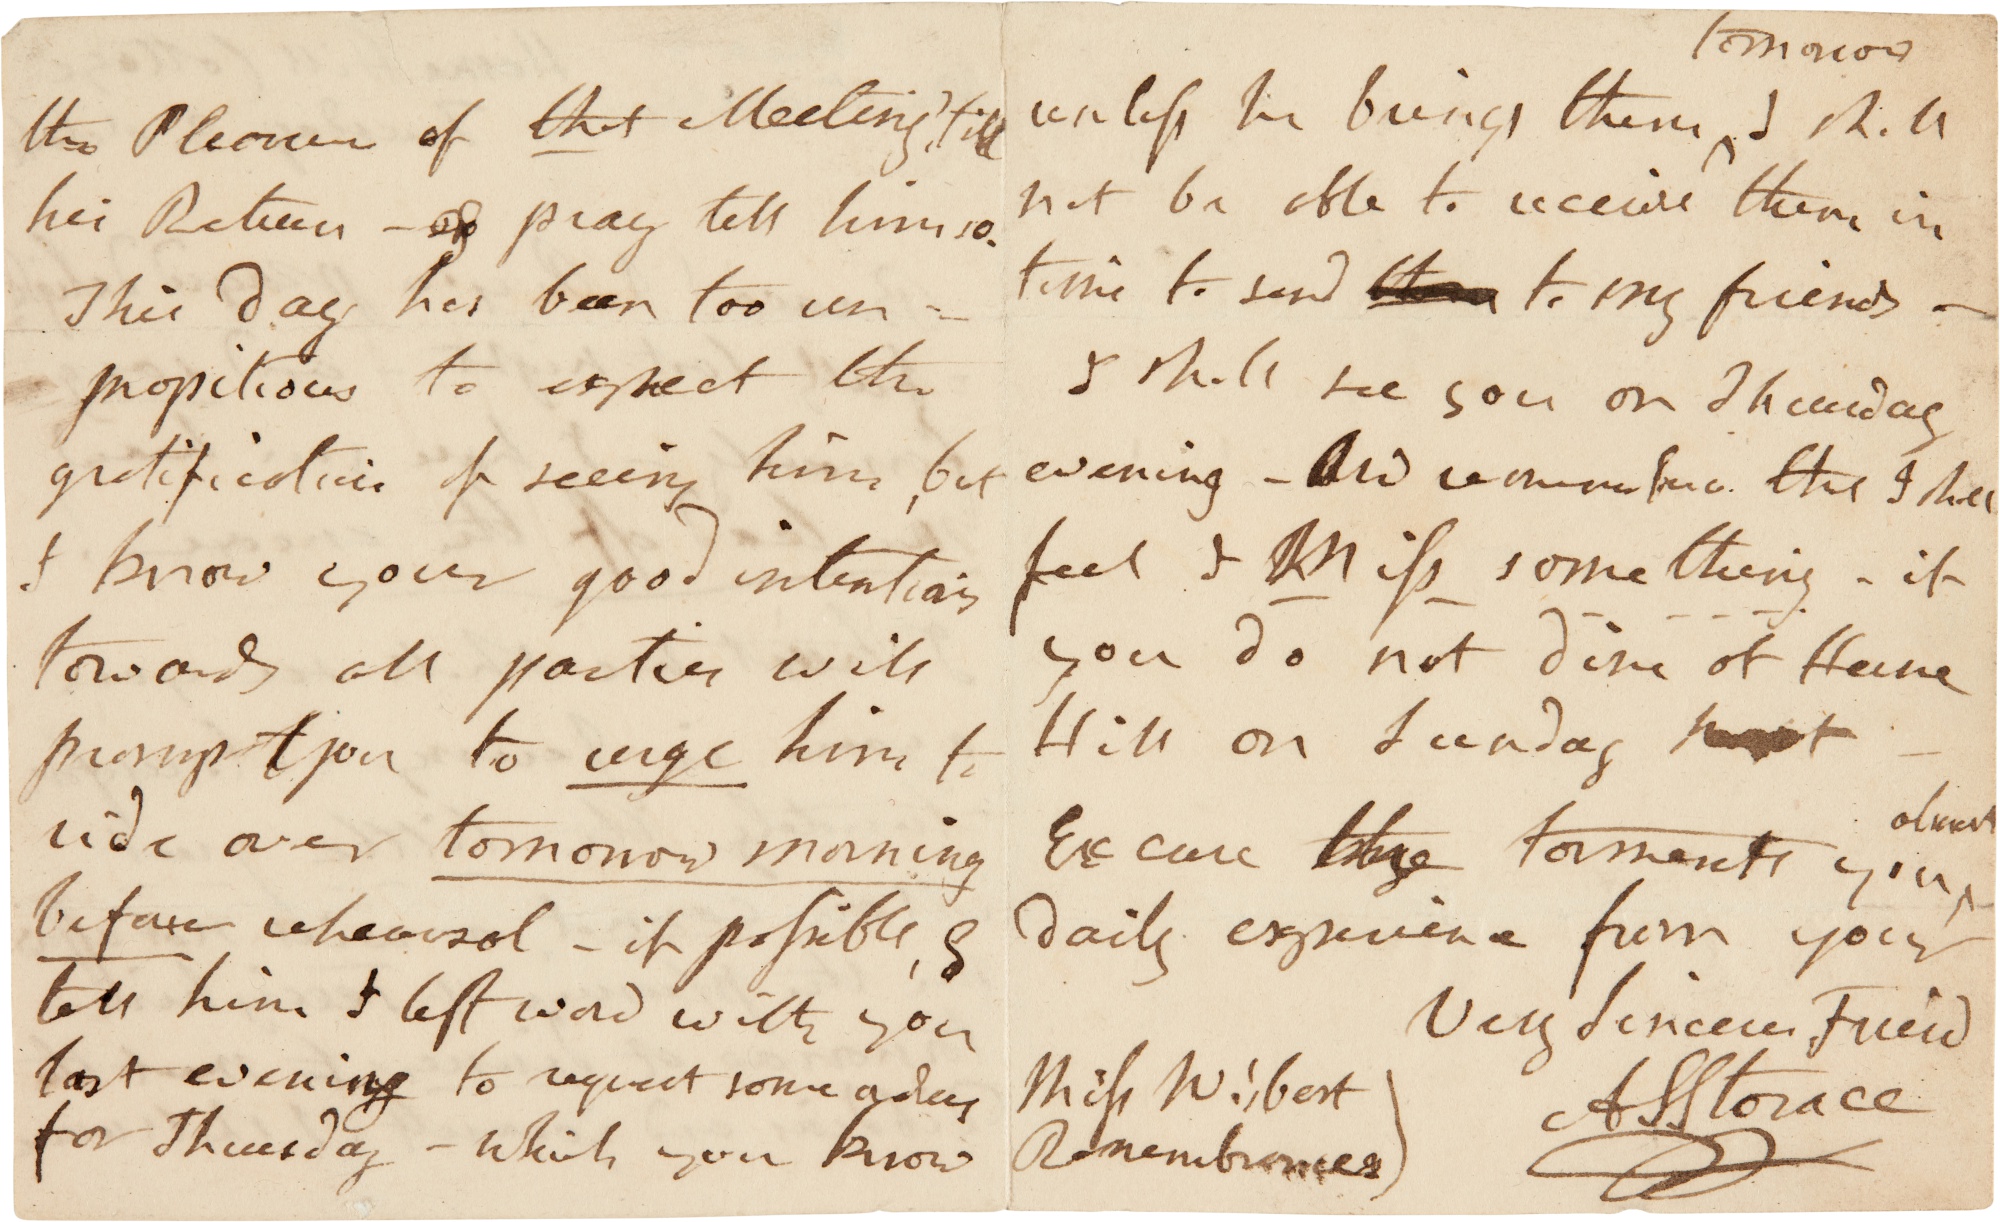 the Pleasure of that Meeting, till
his Return - & pray tell him so.
This day has been too un -
propitious to expect the
gratification of seeing him, but
I know your good intentions
towards all parties will
prompt you to urge him to
ride over tomorrow morning
before rehearsal - if poſsible, &
tell him I left word with you
last evening to request some orders
for Thursday - which you know
tomorrow
unleſs he brings them, I shall
not be able to receive them in
time to send them to my friends -
I shall see you on Thursday
evening - and remember that I shall
feel I Miſs something - if
you do not dine at Herne
Hill on Sunday next -
almost
Excuse the torments you
daily experience from your
Very Sincere Friend
AS Storace
Miſs W's best
Remembrances